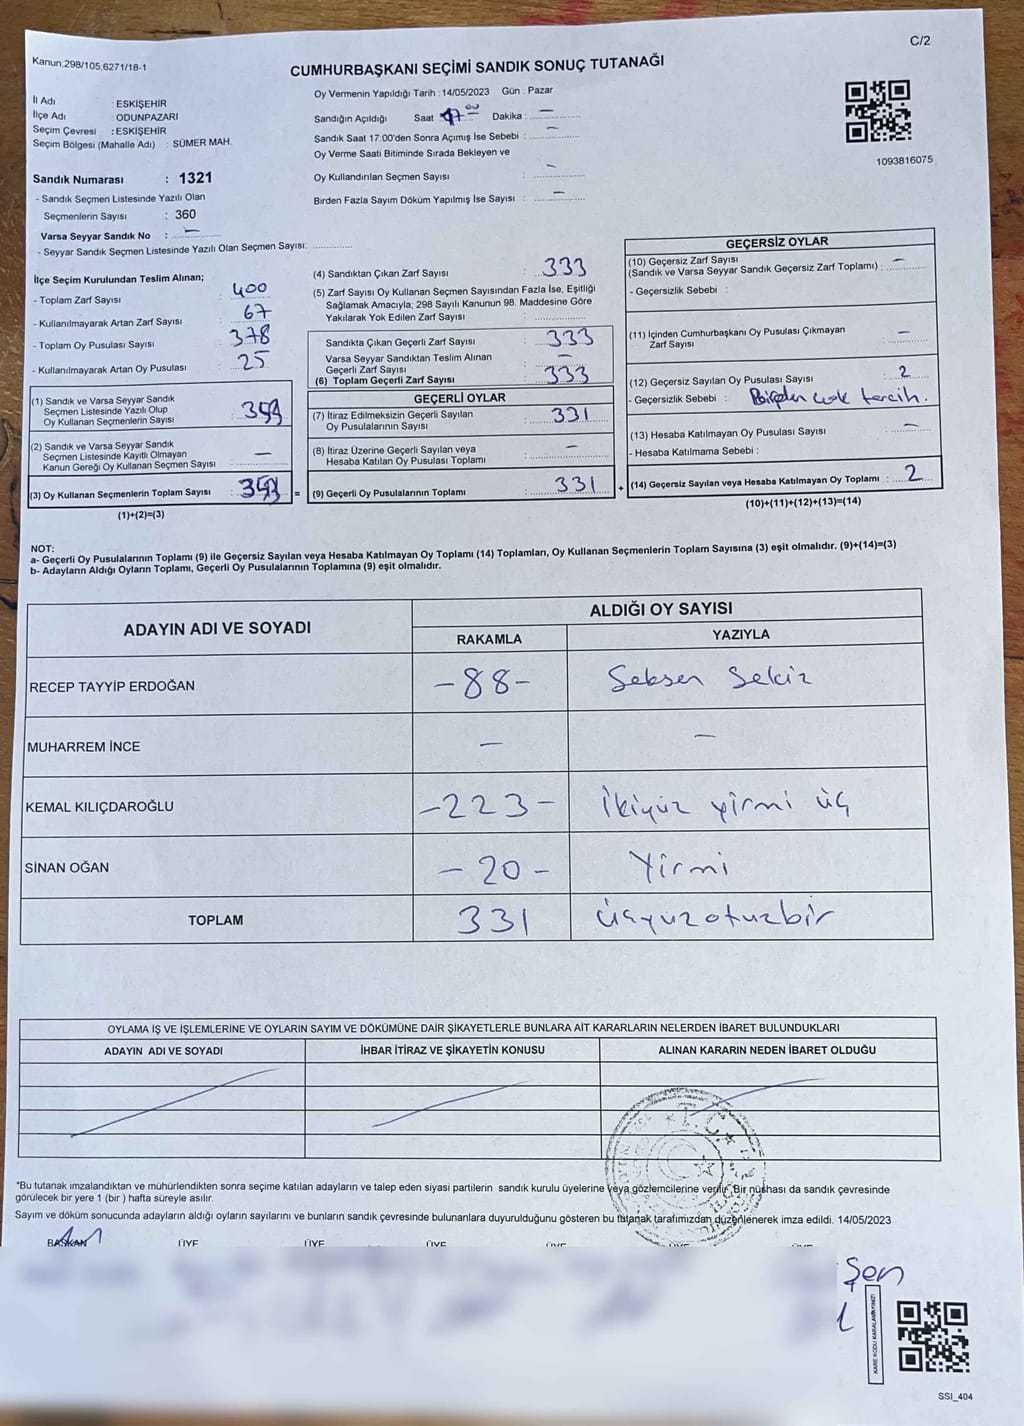 C/2
Kanun,298/105,6271/18-1
CUMHURBAŞKANI SEÇİMİ SANDIK SONUÇ TUTANAĞI
İl Adı : ESKİŞEHİR
İlçe Adı : ODUNPAZARI
Seçim Çevresi : ESKİŞEHİR
Seçim Bölgesi (Mahalle Adı) : SÜMER MAH.
Sandık Numarası : 1321
- Sandık Seçmen Listesinde Yazılı Olan
Seçmenlerin Sayısı : 360
Varsa Seyyar Sandık No : —
- Seyyar Sandık Seçmen Listesinde Yazılı Olan Seçmen Sayısı:
Oy Vermenin Yapıldığı Tarih :14/05/2023 Gün : Pazar
Sandığın Açıldığı Saat : 17 00 Dakika : —
Sandık Saat 17:00'den Sonra Açımış İse Sebebi : —
Oy Verme Saati Bitiminde Sırada Bekleyen ve
Oy Kullandırılan Seçmen Sayısı : —
Birden Fazla Sayım Döküm Yapılmış İse Sayısı : —
1093816075
İlçe Seçim Kurulundan Teslim Alınan;
- Toplam Zarf Sayısı : 400
- Kullanılmayarak Artan Zarf Sayısı : 67
- Toplam Oy Pusulası Sayısı : 378
- Kullanılmayarak Artan Oy Pusulası : 25
(1) Sandık ve Varsa Seyyar Sandık
Seçmen Listesinde Yazılı Olup
Oy Kullanan Seçmenlerin Sayısı :
(2) Sandık ve Varsa Seyyar Sandık
Seçmen Listesinde Kayıtlı Olmayan
Kanun Gereği Oy Kullanan Seçmen Sayısı : —
(3) Oy Kullanan Seçmenlerin Toplam Sayısı : =
(1)+(2)=(3)
(4) Sandıktan Çıkan Zarf Sayısı : 333
(5) Zarf Sayısı Oy Kullanan Seçmen Sayısından Fazla İse, Eşitliği
Sağlamak Amacıyla; 298 Sayılı Kanunun 98. Maddesine Göre
Yakılarak Yok Edilen Zarf Sayısı :
Sandıkta Çıkan Geçerli Zarf Sayısı : 333
Varsa Seyyar Sandıktan Teslim Alınan
Geçerli Zarf Sayısı : —
(6) Toplam Geçerli Zarf Sayısı : 333
GEÇERLİ OYLAR
(7) İtiraz Edilmeksizin Geçerli Sayılan
Oy Pusulalarının Sayısı : 331
(8) İtiraz Üzerine Geçerli Sayılan veya
Hesaba Katılan Oy Pusulası Toplamı : —
(9) Geçerli Oy Pusulalarının Toplamı : 331 +
GEÇERSİZ OYLAR
(10) Geçersiz Zarf Sayısı
(Sandık ve Varsa Seyyar Sandık Geçersiz Zarf Toplamı) : —
- Geçersizlik Sebebi :
(11) İçinden Cumhurbaşkanı Oy Pusulası Çıkmayan
Zarf Sayısı : —
(12) Geçersiz Sayılan Oy Pusulası Sayısı : 2
- Geçersizlik Sebebi : Birden çok tercih.
(13) Hesaba Katılmayan Oy Pusulası Sayısı : —
- Hesaba Katılmama Sebebi :
(14) Geçersiz Sayılan veya Hesaba Katılmayan Oy Toplamı : 2
(10)+(11)+(12)+(13)=(14)
NOT:
a- Geçerli Oy Pusulalarının Toplamı (9) ile Geçersiz Sayılan veya Hesaba Katılmayan Oy Toplamı (14) Toplamları, Oy Kullanan Seçmenlerin Toplam Sayısına (3) eşit olmalıdır. (9)+(14)=(3)
b- Adayların Aldığı Oyların Toplamı, Geçerli Oy Pusulalarının Toplamına (9) eşit olmalıdır.
ADAYIN ADI VE SOYADI ALDIĞI OY SAYISI
RAKAMLA YAZIYLA
RECEP TAYYİP ERDOĞAN -88- Seksen Sekiz
MUHARREM İNCE — —
KEMAL KILIÇDAROĞLU -223- İkiyüz yirmi üç
SİNAN OĞAN -20- Yirmi
TOPLAM 331 üçyüzotuzbir
OYLAMA İŞ VE İŞLEMLERİNE VE OYLARIN SAYIM VE DÖKÜMÜNE DAİR ŞİKAYETLERLE BUNLARA AİT KARARLARIN NELERDEN İBARET BULUNDUKLARI
ADAYIN ADI VE SOYADI İHBAR İTİRAZ VE ŞİKAYETİN KONUSU ALINAN KARARIN NEDEN İBARET OLDUĞU
T.C.
"Bu tutanak imzalandıktan ve mühürlendikten sonra seçime katılan adayların ve talep eden siyasi partilerin sandık kurulu üyelerine veya gözlemcilerine verilir. Bir nüshası da sandık çevresinde
görülecek bir yere 1 (bir ) hafta süreyle asılır.
Sayım ve döküm sonucunda adayların aldığı oyların sayılarını ve bunların sandık çevresinde bulunanlara duyurulduğunu gösteren bu tutanak tarafımızdan düzenlenerek imza edildi. 14/05/2023
BAŞKAN ÜYE ÜYE ÜYE ÜYE ÜYE ÜYE
Şen
KARE KODU KARALAMAYINIZ!
SSI_404